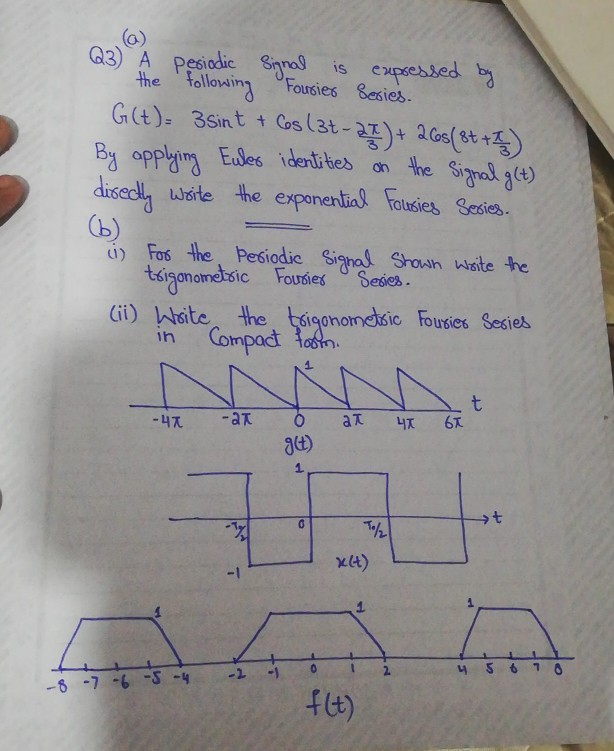 (a)
Q3) A periodic Signal is expressed by
the following Fourier Series.
G(t) = 3sint + Cos(3t - 2π/3) + 2Cos(8t + π/3)
By applying Euler identities on the Signal g(t)
directly write the exponential Fourier Series.
(b)
(i) For the Periodic Signal Shown write the
trigonometric Fourier Series.
(ii) Write the trigonometric Fourier Series
in Compact form.
1
t
-4π -2π 0 2π 4π 6π
g(t)
1
-T₀/2 0 T₀/2 t
-1 x(t)
1 1 1
-8 -7 -6 -5 -4 -2 -1 0 1 2 4 5 6 7 8
f(t)